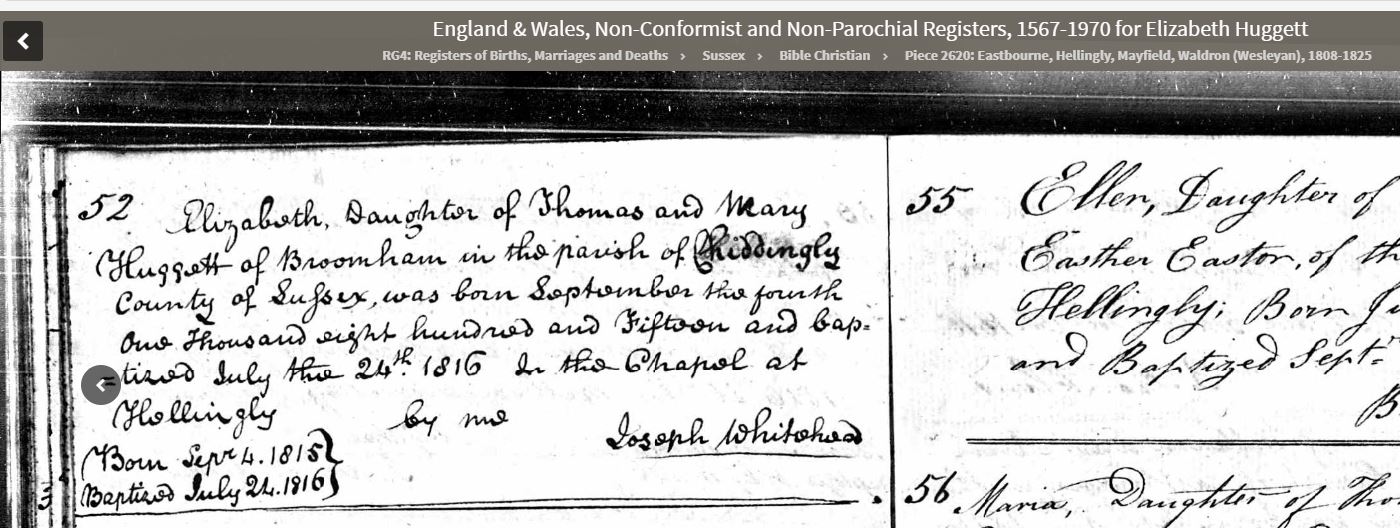 England & Wales, Non-Conformist and Non-Parochial Registers, 1567-1970 for Elizabeth Huggett
RG4: Registers of Births, Marriages and Deaths > Sussex > Bible Christian > Piece 2620: Eastbourne, Hellingly, Mayfield, Waldron (Wesleyan), 1808-1825
52 Elizabeth, Daughter of Thomas and Mary
Huggett of Broomham in the parish of Chiddingly
County of Sussex, was born September the fourth
One Thousand eight hundred and Fifteen and bap=
=tized July the 24th. 1816 In the Chapel at
Hellingly by me
Joseph Whitehead
Born Sepr 4. 1815
Baptized July 24. 1816
55 Ellen, Daughter of
Easther Eastor, of th
Hellingly; Born Ju
and Baptized Sept.
B
56 Maria, Daughter of Tho